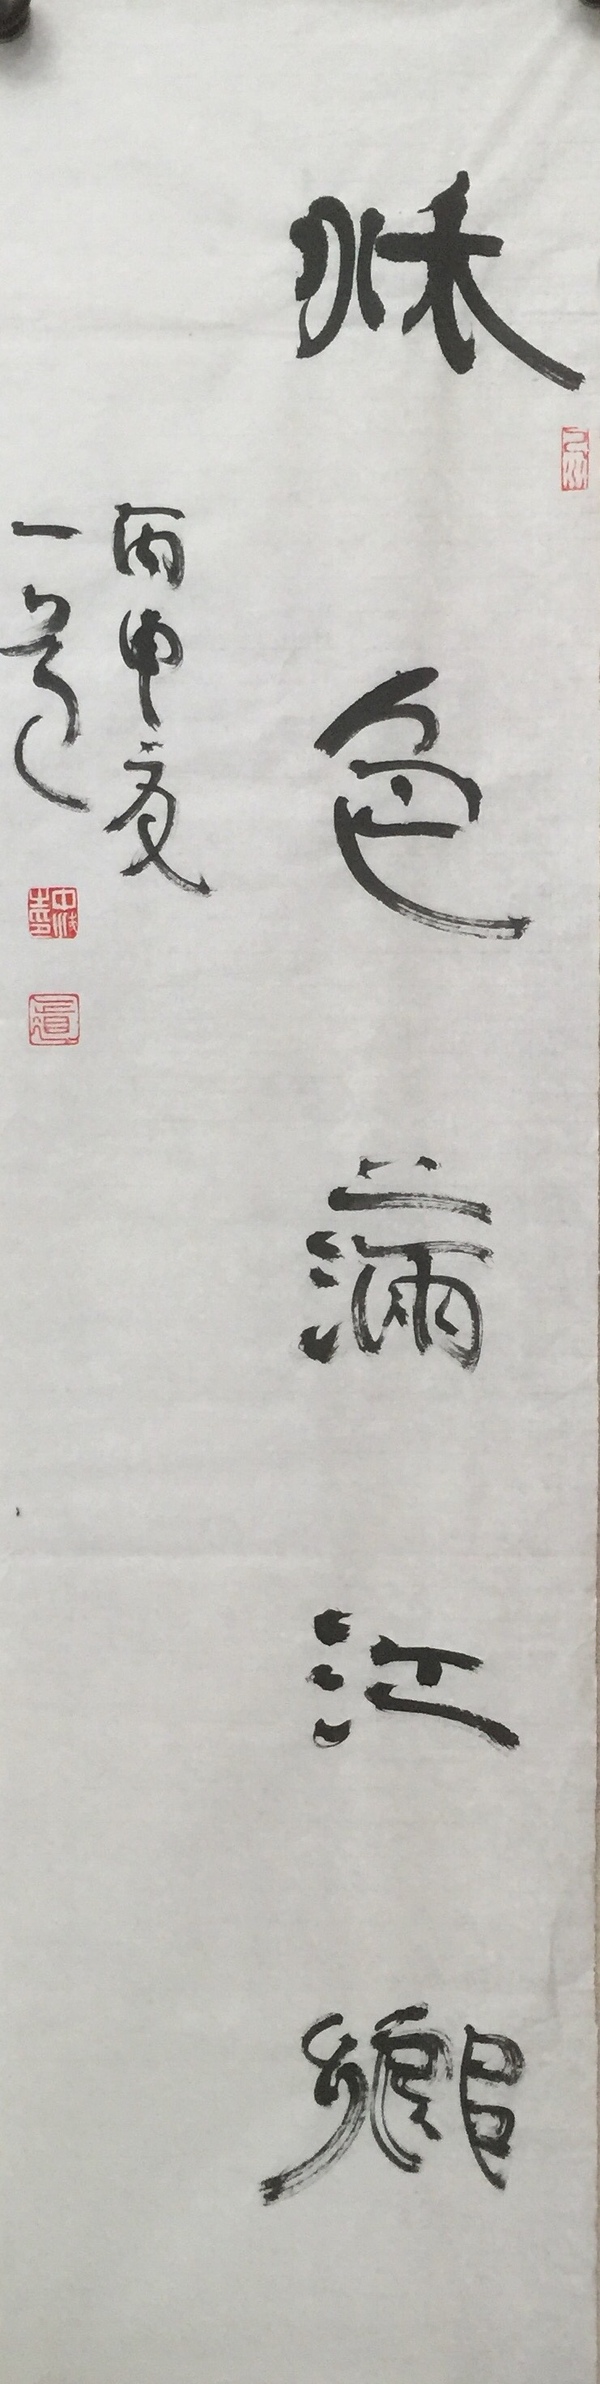 秌色滿江鄉
丙申夏
一道